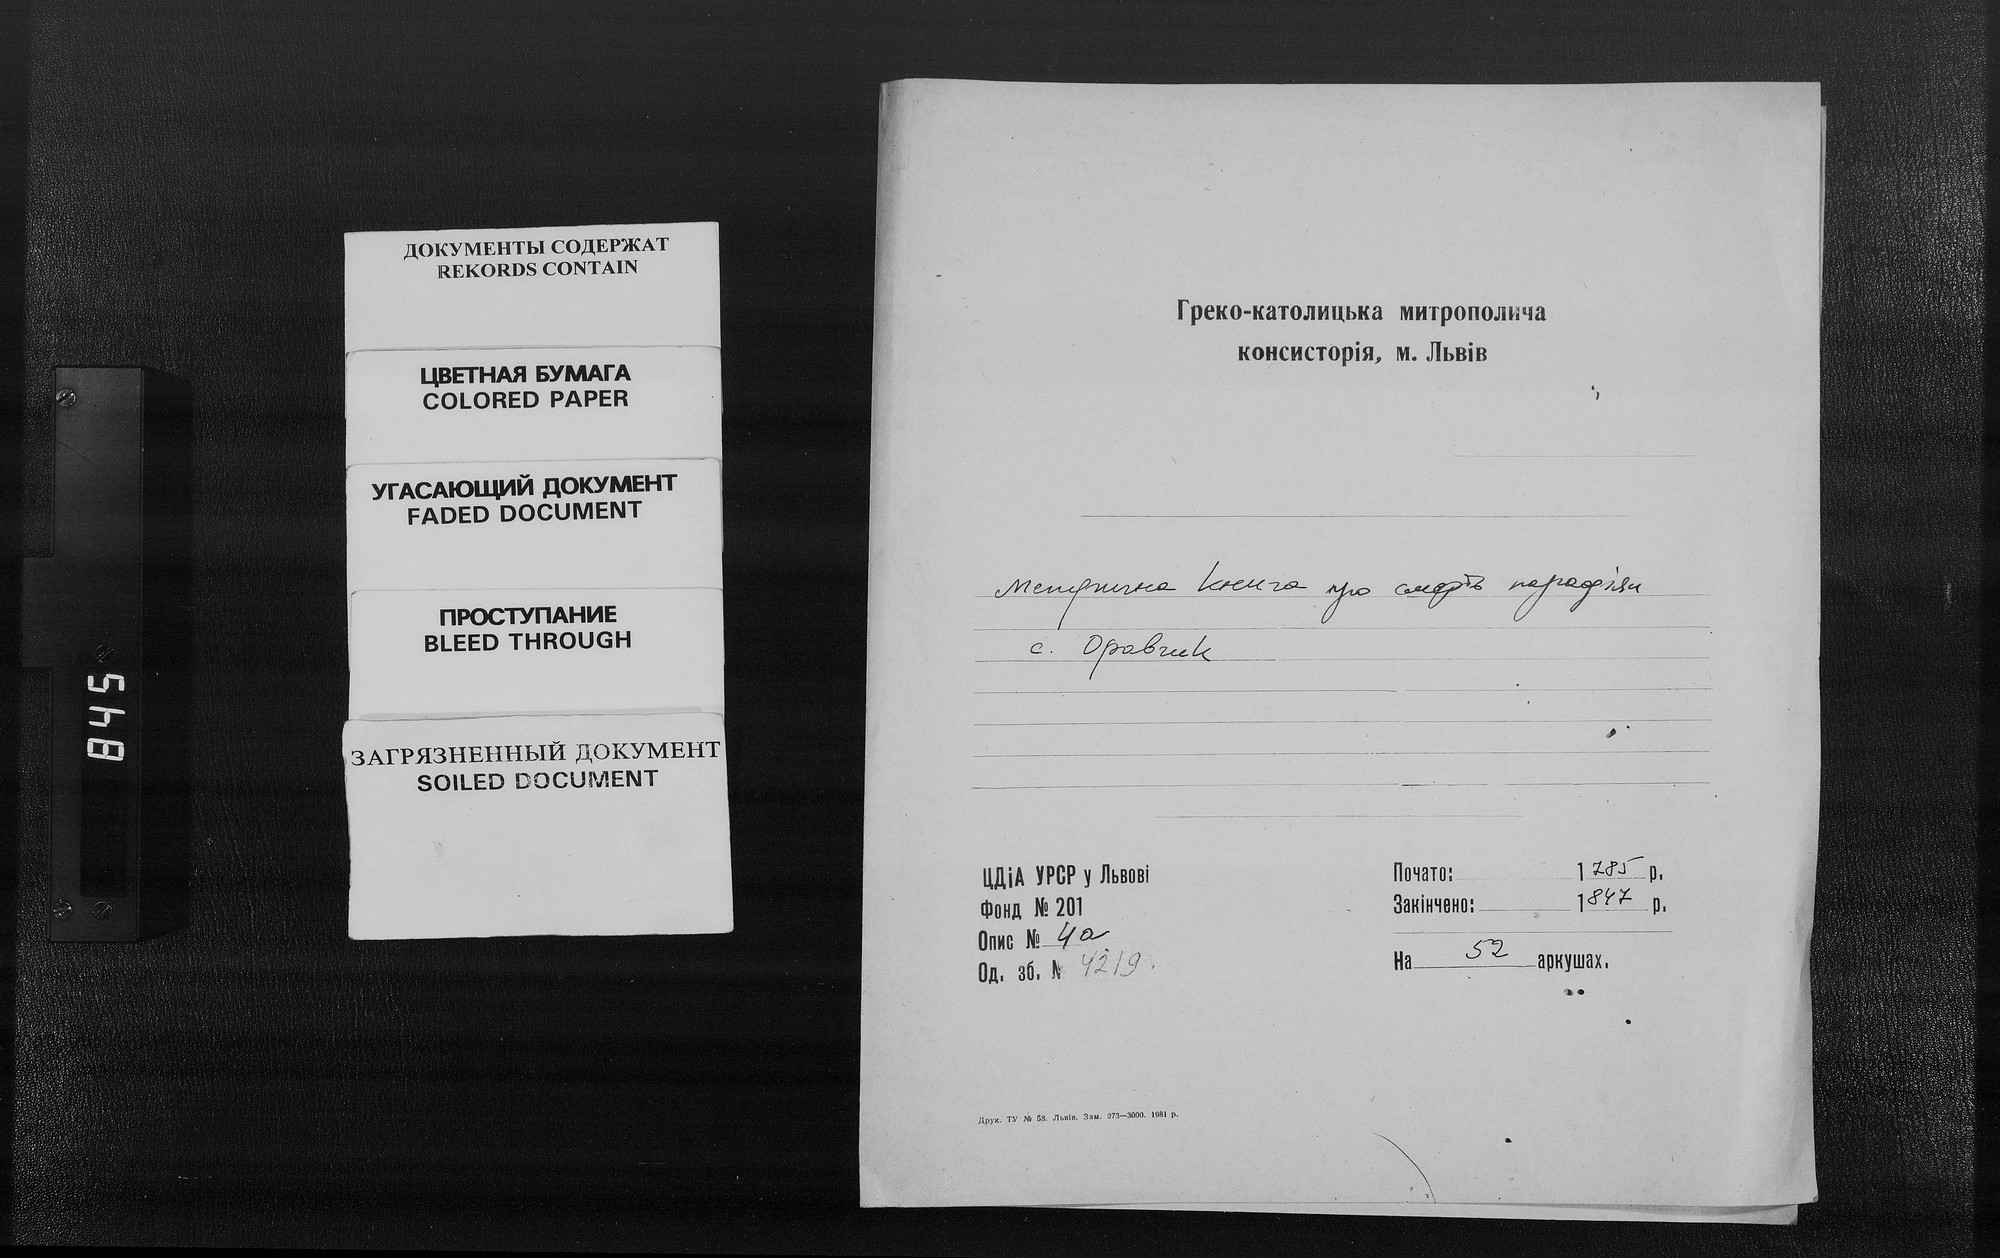 845
ДОКУМЕНТЫ СОДЕРЖАТ
REKORDS CONTAIN
ЦВЕТНАЯ БУМАГА
COLORED PAPER
УГАСАЮЩИЙ ДОКУМЕНТ
FADED DOCUMENT
ПРОСТУПАНИЕ
BLEED THROUGH
ЗАГРЯЗНЕННЫЙ ДОКУМЕНТ
SOILED DOCUMENT
Греко-католицька митрополича
консисторія, м. Львів
Метрична книга про смерть парафіян
с. Оравчик
ЦДіА УРСР у Львові
Фонд № 201
Опис № 4а
Од. зб. № 4219.
Почато: 1785 р.
Закінчено: 1847 р.
На 52 аркушах.
Друк. ТУ № 58. Львів. Зам. 273—3000. 1981 р.